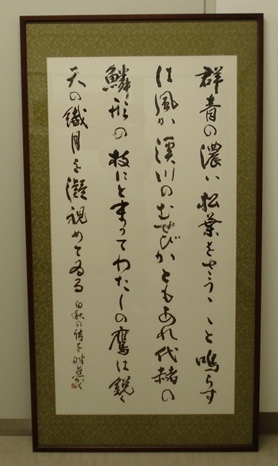 群青の濃い松葉をさう〱と鳴らす
は風か渓川のむせびかともあれ代赭の
鱗形の枝にとまってわたしの鷹は鋭く
天の繊月を凝視めてゐる 白秋の詩を